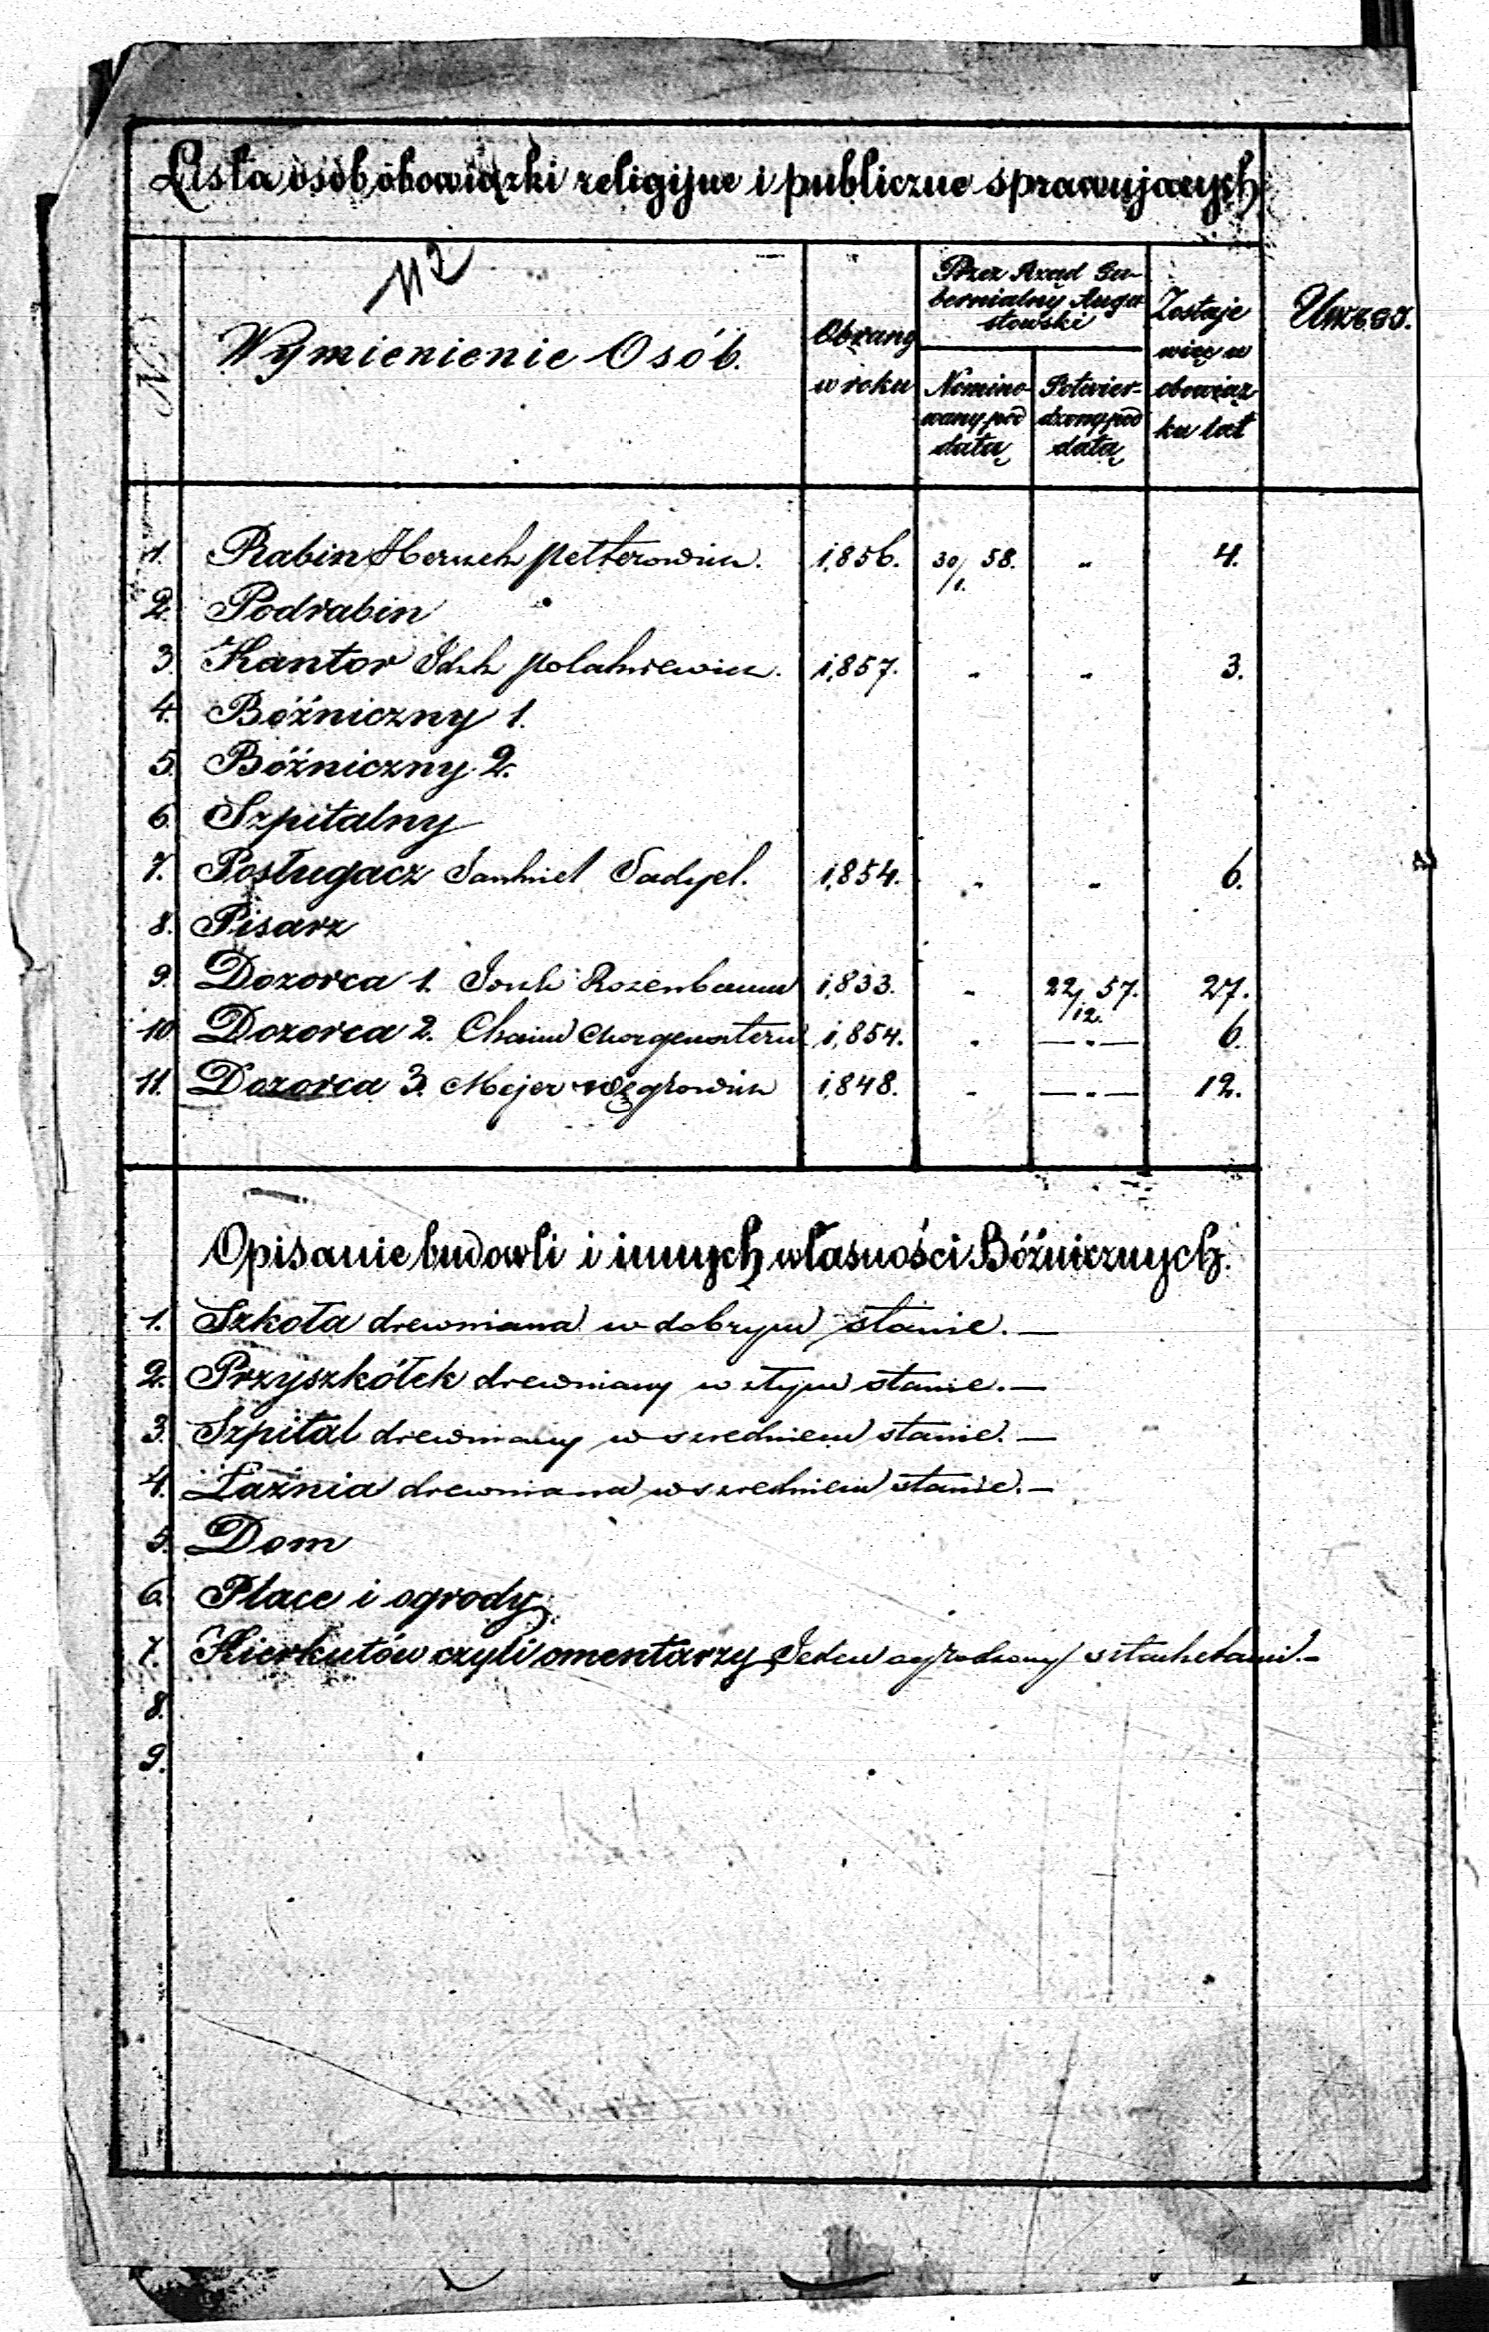 Lista osób obowiązki religijne i publiczne sprawujących
112
N
Wymienienie Osób.
Obrany w roku
Przez Rząd Gubernialny Augustowski
Nominowany pod datą
Potwierdzony pod datą
Zostaje więc w obowiązku lat
Uwagi.
1. Rabin Herszek 1,856. 30/1. 58. " 4.
2. Podrabin
3. Kantor 1,857. " " 3.
4. Bóźniczny 1.
5. Bóźniczny 2.
6. Szpitalny
7. Posługacz Jankiel 1,854. " " 6.
8. Pisarz
9. Dozorca 1. Rozenbaum 1,833. " 22/12. 57. 27.
10. Dozorca 2. Chaim Morgensztern 1,854. " —"— 6.
11. Dozorca 3. Mejer Węgrowicz 1,848. " —"— 12.
Opisanie budowli i innych własności Bóźnicznych.
1. Szkoła drewniana w dobrym stanie. —
2. Przyszkółek drewniany w złym stanie. —
3. Szpital drewniany w szredniem stanie. —
4. Łaźnia drewniana w szredniem stanie. —
5. Dom
6. Place i ogrody
7. Kierkutów czyli cmentarzy Jeden ogrodzony sztachetami. —
8.
9.